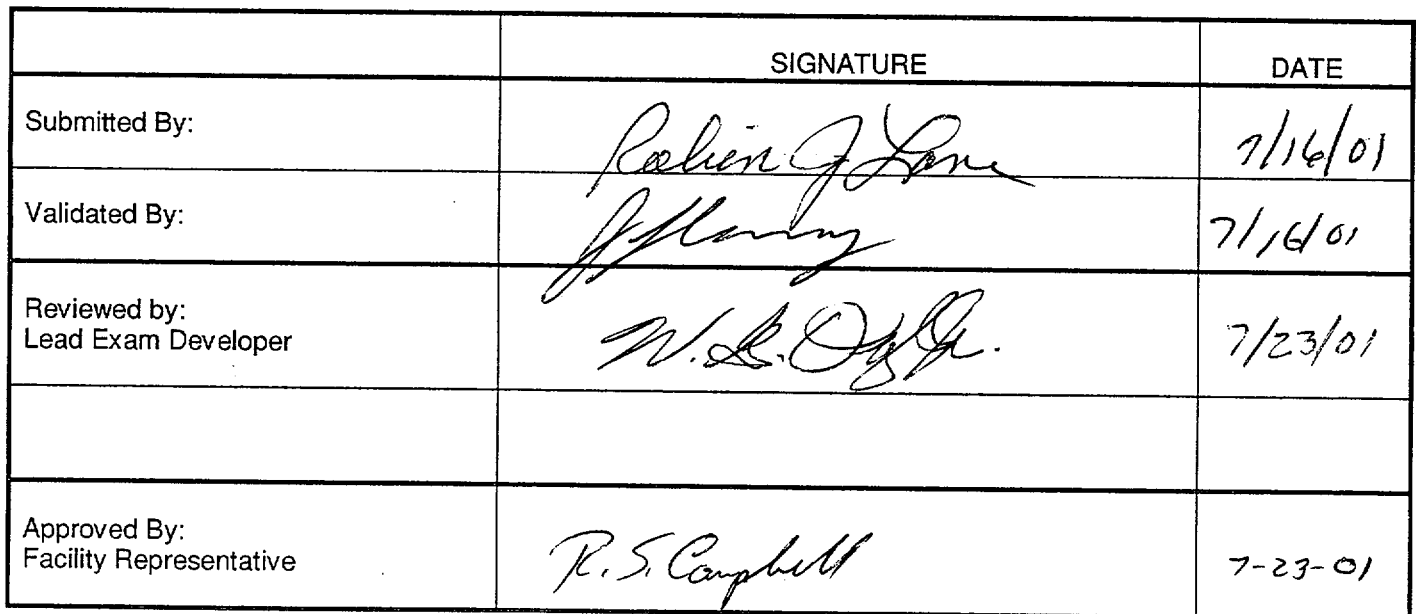 SIGNATURE DATE
Submitted By: Robin J Lane 7/16/01
Validated By: 7/16/01
Reviewed by:
Lead Exam Developer W. 7/23/01
Approved By:
Facility Representative R. S. Campbell 7-23-01